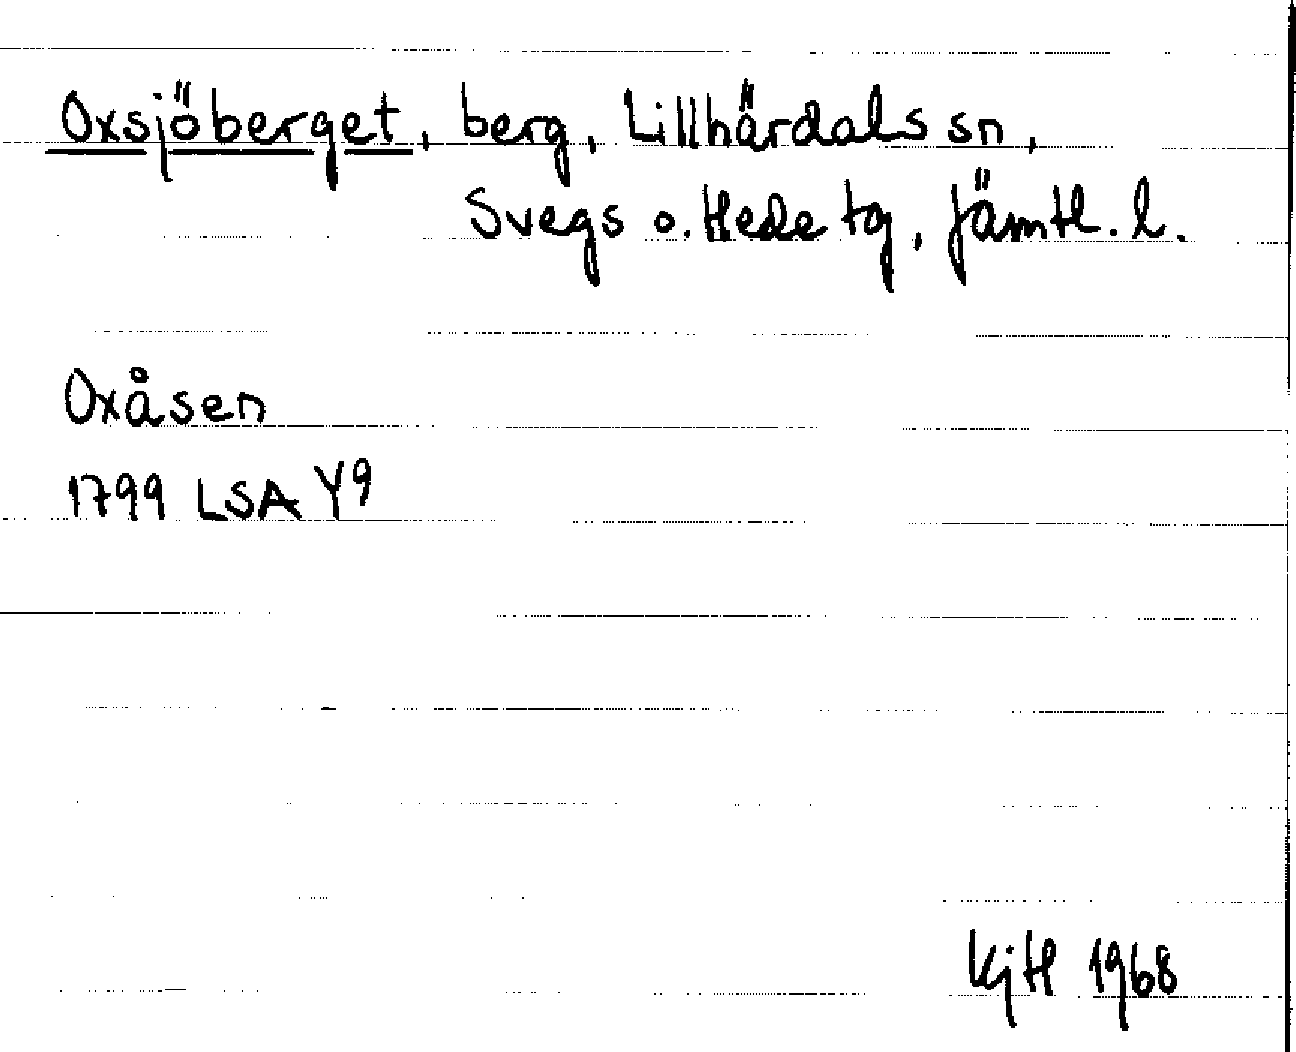 Oxsjöberget, berg, Lillhärdals sn,
Svegs o. Hede tg, Jämtl. l.
Oxåsen
1799 LSA Y9
KjH 1968